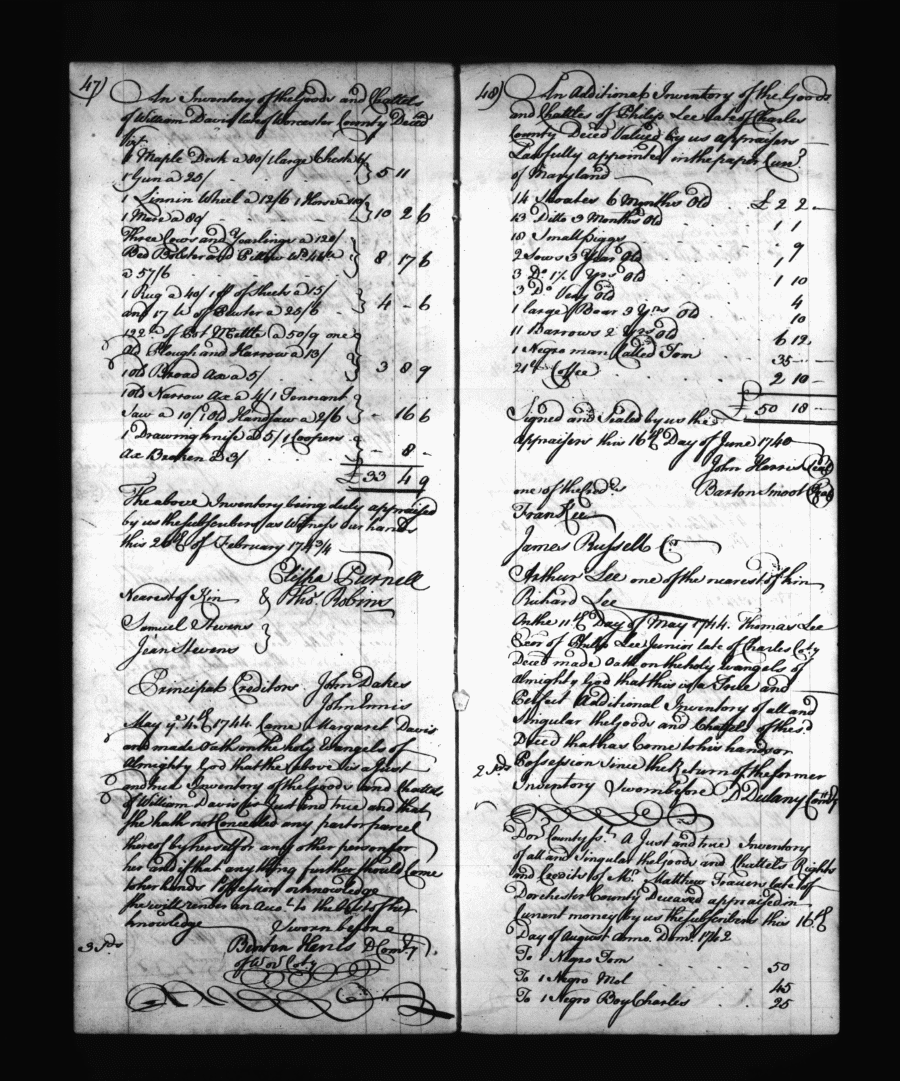 47)
An Inventory of the Goods and Chattels
of William Davis late of Worcester County Deced
Vizt
1 Maple Desk a 80/ 1 large Chest 6/
1 Gun a 25/ } 5 11
1 Linnin Wheel a 12/6 1 Horse a 110/
1 Mare a 80/ } 10 2 6
Three Cows and Yearlings a 120/
Bed Bolster and Pillow Wt
a 57/6 } 8 17 6
1 Rug a 40/ 1 pr of Sheets a 15/
and 17 lb of Pewter a 25/6 } 4 - 6
122 lb of Pot Mettle a 50/9 one
old Plough and Harrow a 13/
1 old Broad Axe a 5/ } 3 8 9
1 old Narrow Axe a 4/ 1 Tennant
Saw a 10/ 1 old Handsaw a 2/6 } - 16 6
1 Drawing knife a 5/ 1 Coopers
Ax Broken a 3/ } - 8 -
£ 33 4 9
The above Inventory being duly appraised
by us the subscribers as Witness our hands
this 26th of February 1743/4
Elisha Purnell
Nearest of Kin & Thos. Robins
Samuel Stevens
Jean Stevens }
Principal Creditors John Dakes
John Ennis
May ye 4th 1744 Came Margaret Davis
and made Oath on the holy Evangels of
Almighty God that the above is a Just
and true Inventory of the goods and Chattels
of William Davis as Just and true and that
she hath not Concealed any part or parcel
thereof by herself or any other person for
her and if that any thing further should Come
to her hands Possession or knowledge
she will render an Acct. to the best of her
knowledge Sworn before
3 Sds Benton Harris D Comry
of Wor Coty
48)
An Additional Inventory of the Goods
and Chattles of Philip Lee late of Charles
County Deced Valued by us appraisers
Lawfully appointed in the paper Curry
of Maryland
14 Shoates 6 Months Old £ 2 2 -
13 Ditto 3 Months Old 1 1
18 Small piggs 9
2 Sows 3 Year Old 1
3 Do 1½ Yrs Old 1 10
3 Do Very Old 4
1 large Boar 3 Yrs Old 10
11 Barrows 2 Yrs Old 6 12
1 Negro man Called Tom 35
21 lb Coffee 2 10 -
£ 50 18 -
Signed and Sealed by us the
appraisers this 16th Day of June 1740
John Harris Seal
one of the Credrs Barton Smoot Seal
Frans Lee
James Russell Co
Arthur Lee one of the nearest of kin
Richard Lee
On the 11th Day of May 1744. Thomas Lee
Exor of Philip Lee Junior late of Charles Coty
Deced made Oath on the holy Evangels of
Almighty God that this is a True and
Perfect Additional Inventory of all and
Singular the Goods and Chattels of the sd
Deced that has Come to his hands or
2 Sds Possession Since the Return of the former
Inventory Sworn before D Dulany Comry
Dor County Sst A Just and true Inventory
of all and Singular the Goods and Chattels Rights
and Credits of Mr Matthew Travers late of
Dorchester County Deceased appraised in
Current money by us the subscribers this 16th
Day of August anno. Dom. 1742
To 1 Negro Tom 50
To 1 Negro Mol 45
To 1 Negro Boy Charles 25